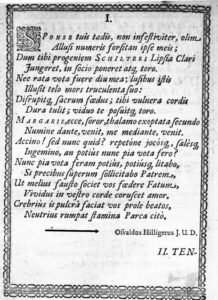 I.
SPONSE tuis tædis, non infestiviter, olim
Allusi numeris forsitan ipse meis;
Dum tibi progeniem SCHILTERI Lipsia Clari
Jungeret, in socio poneret atq; toro.
Nec rata vota fuere diu mea: lusibus istis
Illusit telo mors truculenta suo:
Disrupitq; sacrum fœdus; tibi vulnera cordis
Dura tulit; viduo te posuitq; toro.
MARGARIS, ecce, soror, thalamo exoptata secundo
Numine dante, venit, me mediante, venit.
Accino! sed nunc quid? repetone jocosq;, salesq;
Ingemino, an potius nunc pia vota fero?
Nunc pia vota feram potius, potiusq; litabo,
Si precibus superum sollicitabo Patrem,
Ut melius fausto societ vos fœdere Fatum,
Vividus in vestro corde coruscet amor,
Crebrius is pulcrâ faciat vos prole beatos,
Neutrius rumpat stamina Parca citò.
Osvaldus Hilligerus J. U. D.
II. TEN-